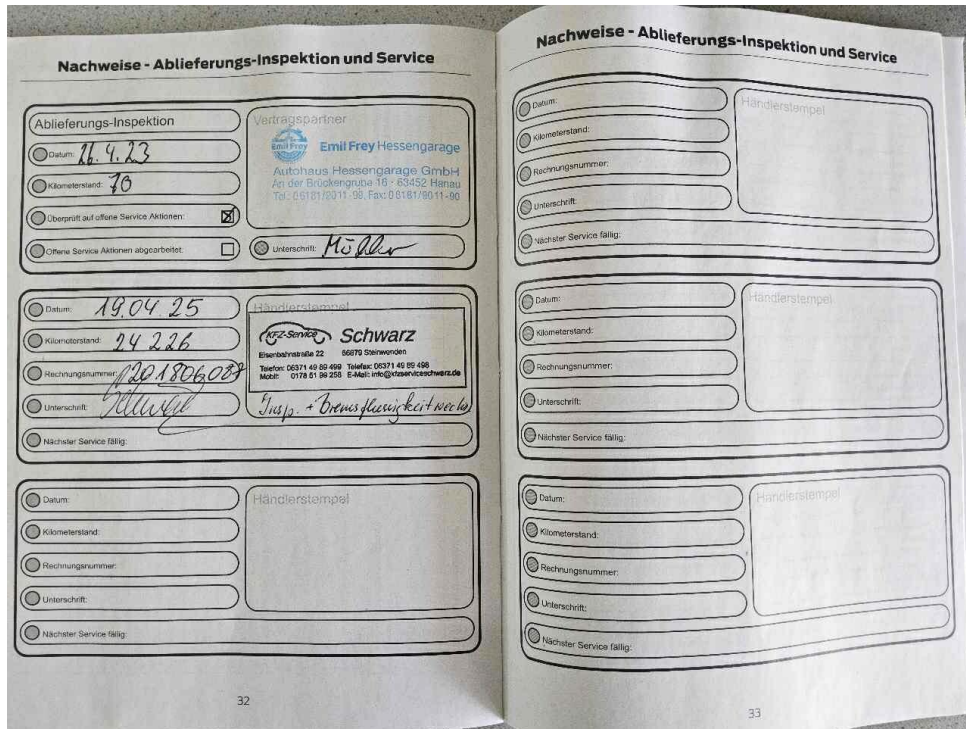 Nachweise - Ablieferungs-Inspektion und Service
Ablieferungs-Inspektion
Datum: 26.4.23
Kilometerstand: 78
Überprüft auf offene Service Aktionen:
Offene Service Aktionen abgearbeitet:
Vertragspartner
Emil Frey
Emil Frey Hessengarage
Autohaus Hessengarage GmbH
An der Brückengrube 16 · 63452 Hanau
Tel.: 06181/9011-99, Fax: 06181/9011-90
Unterschrift: Müller
Datum: 19.04.25
Kilometerstand: 24 226
Rechnungsnummer:
Unterschrift:
Nächster Service fällig:
Händlerstempel
KFZ-Service Schwarz
Eisenbahnstraße 22 66879 Steinwenden
Telefon: 06371 49 89 499 Telefax: 06371 49 89 498
Mobil: 0178 51 99 258 E-Mail: info@kfzserviceschwarz.de
Insp. + Bremsflüssigkeit
Datum:
Kilometerstand:
Rechnungsnummer:
Unterschrift:
Nächster Service fällig:
Händlerstempel
32
Nachweise - Ablieferungs-Inspektion und Service
Datum:
Kilometerstand:
Rechnungsnummer:
Unterschrift:
Nächster Service fällig:
Händlerstempel
Datum:
Kilometerstand:
Rechnungsnummer:
Unterschrift:
Nächster Service fällig:
Händlerstempel
Datum:
Kilometerstand:
Rechnungsnummer:
Unterschrift:
Nächster Service fällig:
Händlerstempel
33